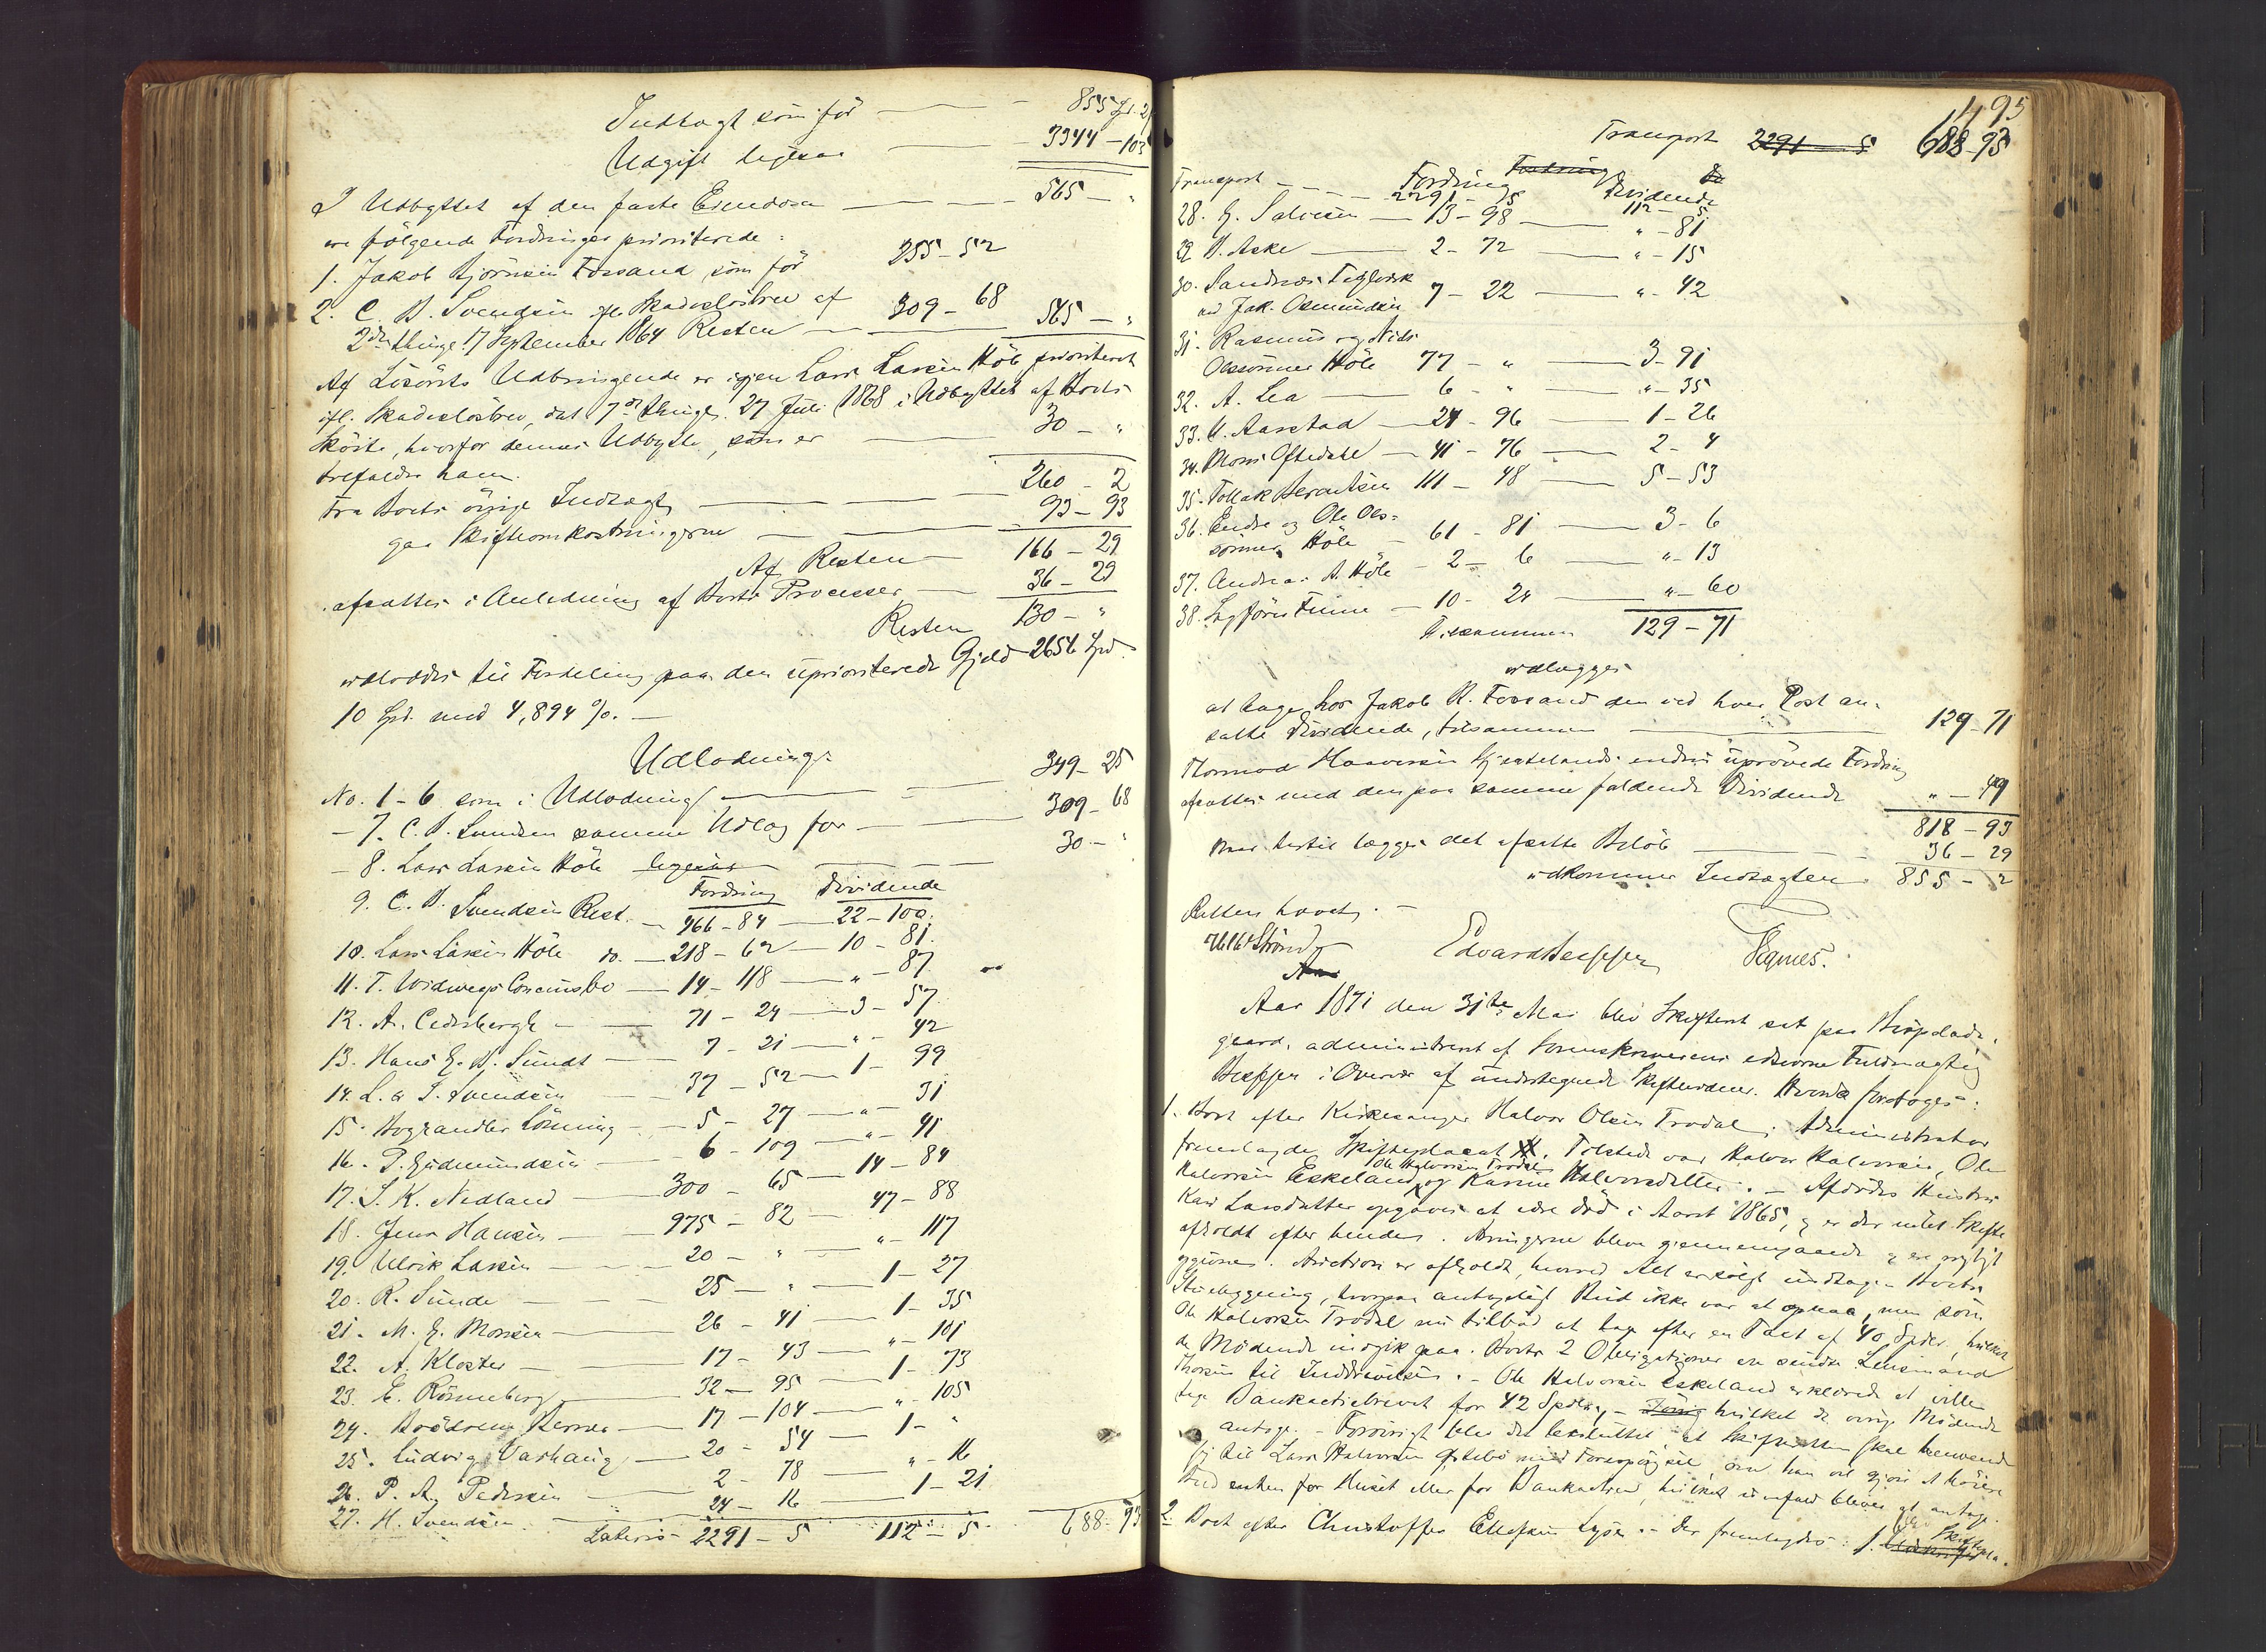 Indtægt som før — 855 Spd. 2
Udgift ligesaa — 3344 - 103
I Udbyttet af den faste Eiendom — 565 - "
ere følgende Fordringer prioriterede:
1. Jakob Bjørnsen Fossand som før 255 - 52
2. C. B. Svendsen ifl. Skadesløsbrev af
2den thingl. 17 September 1864 Resten — 309 - 68 565 - "
Af Løsørets Udbringende er igjen Lars Larsen Høle prioriteret
ifl. Skadesløsbrev, dat. 7de thingl. 27 Juli 1868 i Udbyttet af Boets
Skøite, hvorfor dennes Udbytte, som er — 30 - "
tilfalder ham.
Fra Boets øvrige Indtægt — 260 - 2
gaa Skifteomkostningerne — 93 - 93
Af Resten — 166 - 29
afsættes i Anledning af Boets Processer — 36 - 29
Resten 130 - "
udloddes til Fordeling paa den uprioriterede Gjæld 2656 Spd.
10 Spd. med 4,894 %. —
Udlodning:
No. 1 - 6 som i Udlodning — 349 - 25
- 7. C. B. Svendsen samme Udlæg for — 309 - 68
- 8. Lars Larsen Høle ligesaa — 30 - "
Fordring Dividende
9. C. B. Svendsen Rest. — 466 - 84 — 22 - 100.
10. Lars Larsen Høle do. — 218 - 62 — 10 - 81.
11. T. Widwegs Concursbo — 14 - 118 — " - 87.
12. A. Cedersbergh — 71 - 24 — 3 - 57.
13. Hans E. B. Sundt — 7 - 21 — " - 42
14. L. & S. Svendsen — 37 - 52 — 1 - 99
15. Boghandler Lønning — 5 - 27 — " - 31
16. P. Gudmundsen — 6 - 109 — " - 41
17. S. K. Nedland — 300 - 65 — 14 - 84
18. Jens Hansen — 975 - 82 — 47 - 88
19. Ulrik Larsen — 20 - " — " - 117
20. R. Sunde — 25 - " — 1 - 27
21. M. G. Monsen — 26 - 41 — 1 - 35
22. A. Kloster — 17 - 43 — " - 101
23. E. Rønneberg — 32 - 95 — 1 - 73
24. Brødrene Berner — 17 - 104 — " - 105
25. Ludvig Varhaug — 20 - 54 — 1 - "
26. P. A. Pedersen — 2 - 78 — " - 16
27. H. Svendsen — 24 - 16 — 1 - 21
Lateris 2291 - 5 112 - 5. 688 - 93
495
Transport 2291 5 688 - 93
Fordring
Transport — Fordring Dividende
2291 - 5 112 - 5
28. G. Salvesen — 13 - 98 — " - 81
29. B. Aske — 2 - 72 — " - 15
30. Sandnæs Teglværk
ved Jak. Osmundsen 7 - 22 — " - 42
31. Rasmus og Nils
Olssønner Høle 77 - " — 3 - 91
32. A. Lea — 6 - " — " - 35
33. U. Aarstad — 24 - 96 — 1 - 26
34. Mons Oftedahl — 41 - 76 — 2 - 4
35. Tollak Berentsen 111 - 48 — 5 - 53
36. Endre og Ole Ols-
sønner Høle — 61 - 81 — 3 - 6
37. Andreas A. Høle — 2 - 6 — " - 13
38. Sagfører Finne — 10 - 24 — " - 60
Tilsammen 129 - 71
udlægges
at tage hos Jakob B. Fossand den ved hver Post an-
satte Dividende, tilsammen — 129 - 71
Mormod Haaversen Hjertelands endnu uprøvede Fordring
afsættes med den paa samme faldende Dividende " - 49
818 - 93
Naar hertil lægges det afsatte Beløb — 36 - 29
udkommer Indtægten 855 - 2
Retten hævet. —
Edvard Seipper Tegnes.
Aar 1871 den 31te Mai blev Skifteret sat paa Bispelads-
gaard, administreret af Sorenskriverens edsvorne Fuldmægtig
Seipper i Overvær af undertegnede Skiftevidner. Hvorda foretoges:
1. Boet efter Kirkesanger Halvor Olsen Trodal. Administrator
fremlagde Skifteplacat X. Tilstede var Halvor Halvorsen, Ole
Ole Halvorsen Trodal
Halvorsen Eskeland og Karine Halvorsdatter. — Afdødes Hustru
Kari Larsdatter opgaves at være død i Aaret 1865, og er der intet Skifte
afholdt efter hende. Arvingerne bleve gjennemgaaede og ere rigtigt
opgivne. Auction er afholdt, hvorved Alt er solgt undtagen Boets
Stuebygning, hvorpaa antageligt Bud ikke var at opnaa, men som
Ole Halvorsen Trodal nu tilbød at tage efter en Taxt af 40 Spdlr., hvilket
de Mødende indgik paa. Boets 2 Obligationer ere sendte Lensmand
Thorsen til Inddrivelse. — Ole Halvorsen Eskeland erklærede at ville
tage Bankactiebrevet for 42 Spdlr., — hvilket de øvrige Mødende
antoge. — Forøvrigt blev det besluttet, at Skifteretten skal henvende
sig til Lars Halvorsen Østebø med Forespørgsel, om han vil gjøre et høiere
Bud enten for Huset eller for Bankactien, hvilket i saafald bliver at antage.
2. Boet efter Christoffer Ellefsen Lysø. — Der fremlagdes: 1. Skiftepla-